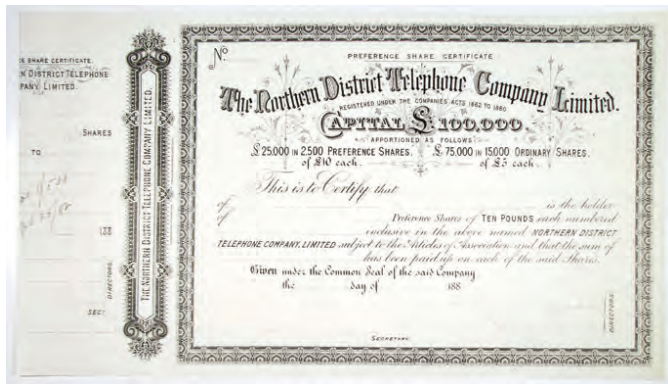 E SHARE CERTIFICATE.
N DISTRICT TELEPHONE
PANY, LIMITED.
SHARES
TO
188
DIRECTORS.
SECY
THE NORTHERN DISTRICT TELEPHONE COMPANY LIMITED.
No
PREFERENCE SHARE CERTIFICATE
The Northern District Telephone Company Limited.
REGISTERED UNDER THE COMPANIES ACTS 1862 TO 1880.
CAPITAL £100,000.
APPORTIONED AS FOLLOWS
£25,000 IN 2,500 PREFERENCE SHARES, £75,000 IN 15000 ORDINARY SHARES,
of £10 each. of £5 each.
This is to Certify that
of is the holder
of Preference Shares of TEN POUNDS each numbered
inclusive in the above named NORTHERN DISTRICT
TELEPHONE COMPANY, LIMITED subject to the Articles of Association and that the sum of
has been paid up on each of the said Shares.
Given under the Common Seal of the said Company
the day of 188
DIRECTORS.
SECRETARY.